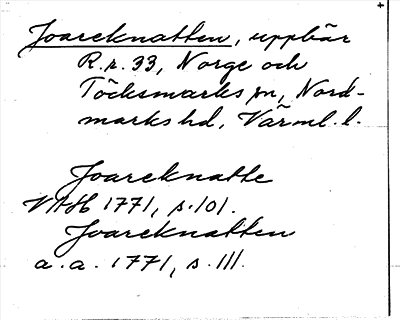 Joareknatten, uppbär
R.r. 33, Norge och
Töcksmarks sn, Nord-
marks hd, Värml. l.
Joareknatte
VAH 1771, s. 101.
Joareknatten
a. a. 1771, s. 111.